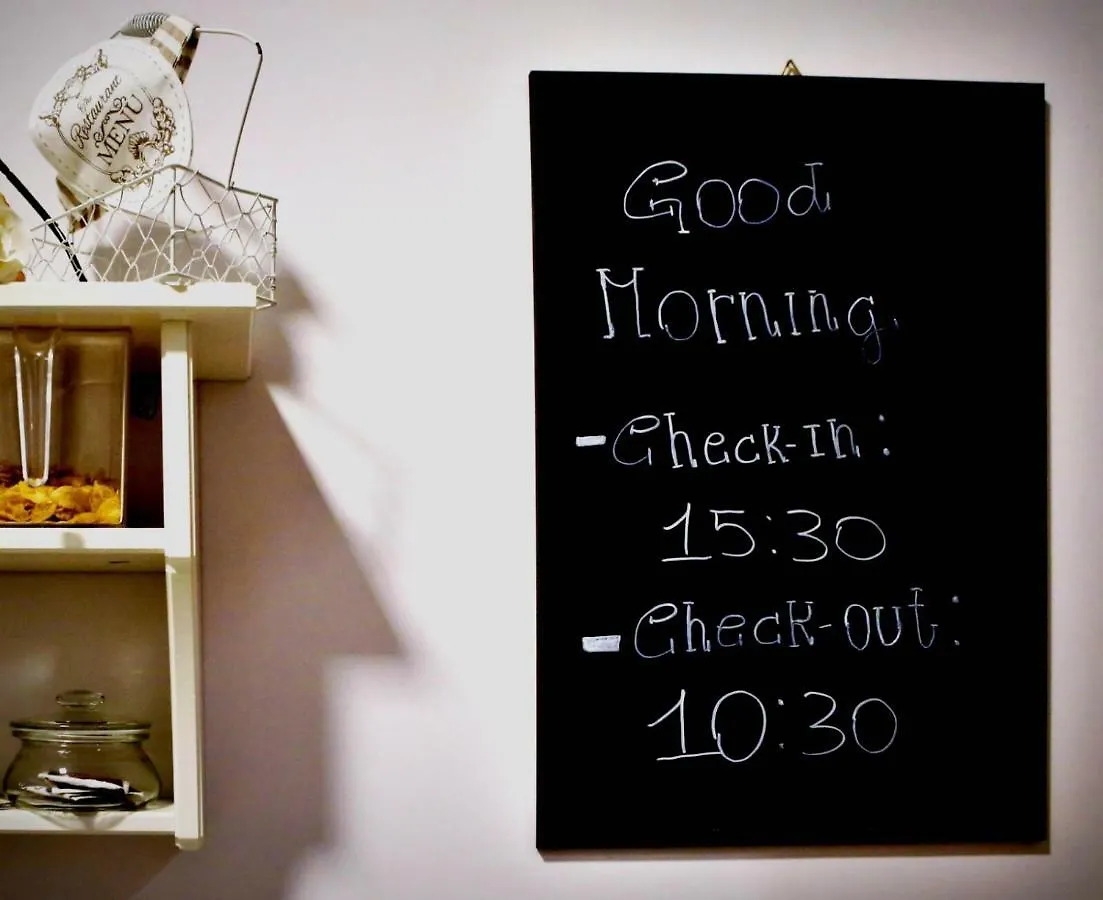 The
Restaurant
MENU
Good
Morning.
-Check-in:
15:30
-Check-out:
10:30